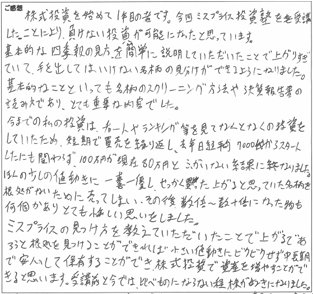 ご感想
株式投資を始めて1年目の者です。今回ミスプライス投資塾を受講
したことにより、負けない投資が可能になったと思っています。
基本的な四季報の見方を簡単に説明していただいたことで上がりそう
で、手を出してはいけない名柄の見分けができるようになりました。
基本的なことといっても名柄のスクリーニング方法や決算報告書の
読み方であり、とても重要な内容でした。
今までの私の投資は、チャートやランキング等を見てなんとなくの投資を
していたため、短期で買売を繰り返し、
したにも関わらず100万円が現在80万円と、ふがいない結果に終わりました。
ほんの少しの値動きに一喜一憂し、せっかく上がると思っていた名柄を
根拠がないために売ってしまい、その後数倍〜数十倍になった物も
何個かありとても悔しい思いをしました。
ミスプライスの見つけ方を教えていただいたことで上がるであ
ろうと根拠を見つけることができれば小さい値動きにビクビクせず中長期
で安心して保有することができ、株式投資で資産を増やすことがで
きると思います。受講前と今では比べものにならない程、株が好きになりました。